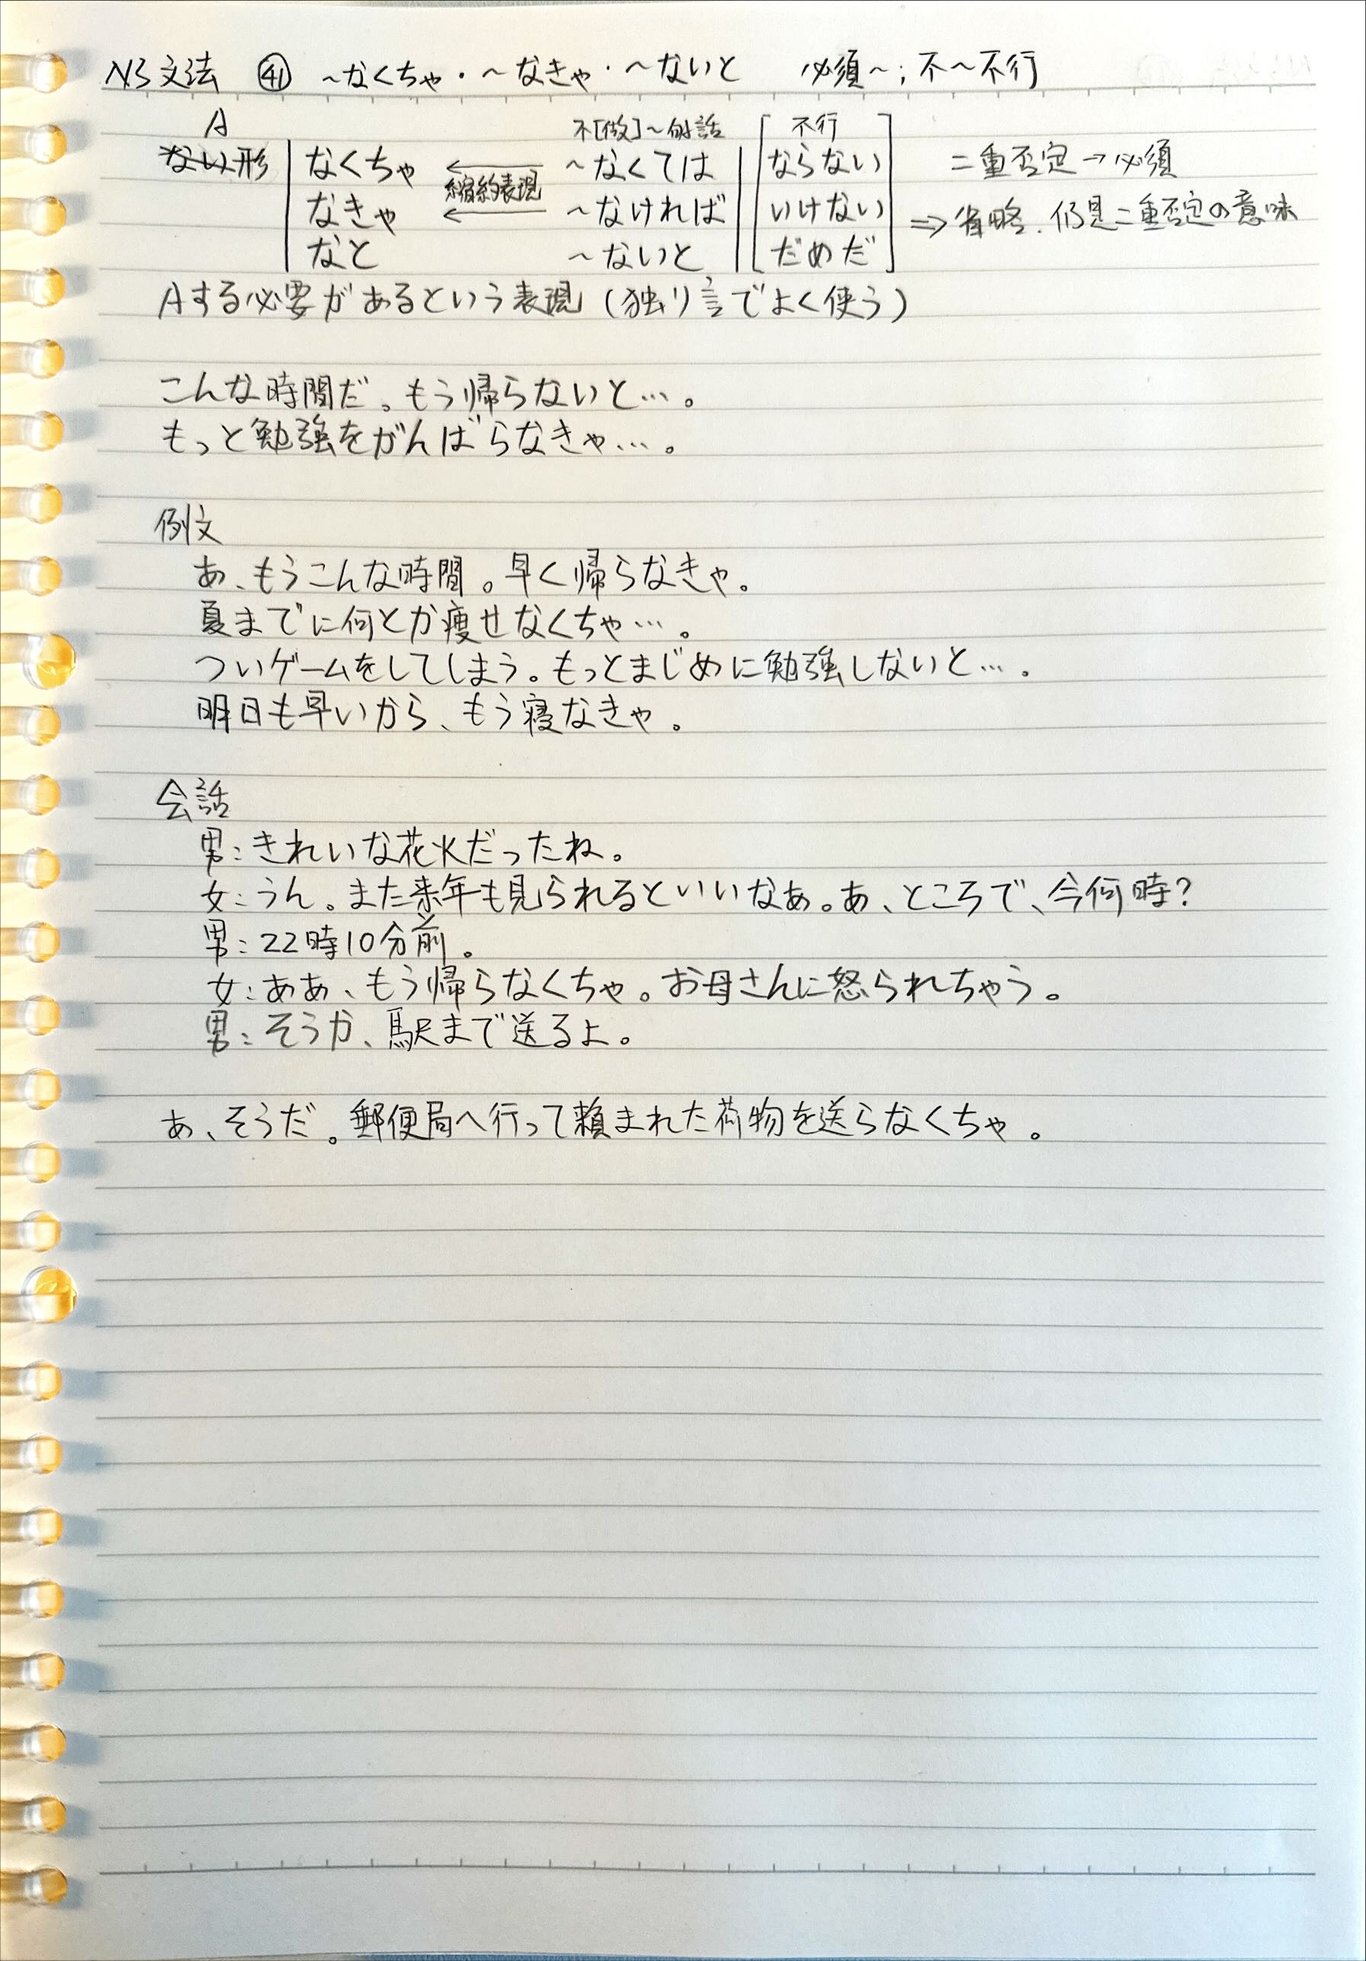 N3文法 ㊶ ~なくちゃ・~なきゃ・~ないと 必須~;不~不行
A 不[做]~的話 不行
ない形 なくちゃ 縮約表現 ~なくては ならない 二重否定→必須
なきゃ ~なければ いけない ⇒省略.仍是二重否定の意味
なと ~ないと だめだ
Aする必要があるという表現(独り言でよく使う)
こんな時間だ。もう帰らないと…。
もっと勉強をがんばらなきゃ…。
例文
あ、もうこんな時間。早く帰らなきゃ。
夏までに何とか痩せなくちゃ…。
ついゲームをしてしまう。もっとまじめに勉強しないと…。
明日も早いから、もう寝なきゃ。
会話
男:きれいな花火だったね。
女:うん。また来年も見られるといいなぁ。あ、ところで、今何時?
男:22時10分前。
女:ああ、もう帰らなくちゃ。お母さんに怒られちゃう。
男:そうか、駅まで送るよ。
あ、そうだ。郵便局へ行って頼まれた荷物を送らなくちゃ。